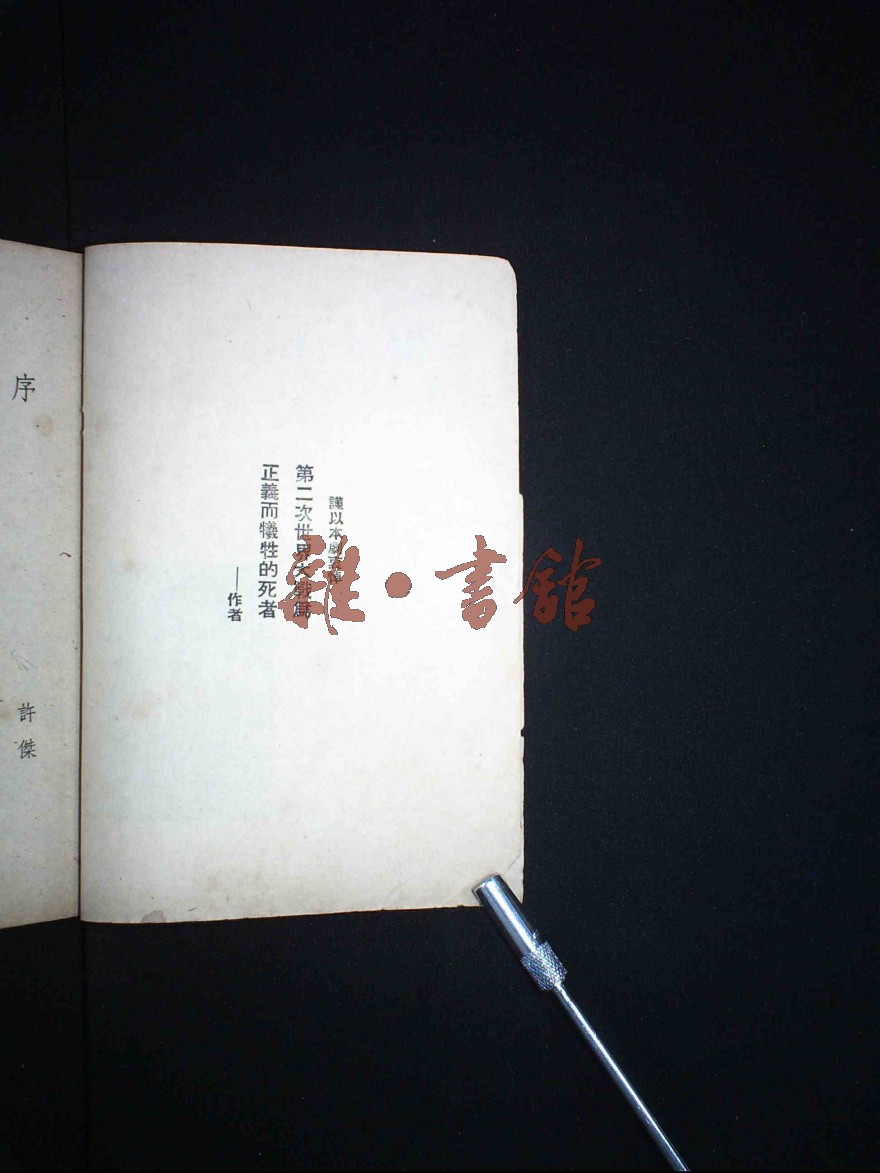 謹以本劇哀悼
第二次世界大戰爲
正義而犧牲的死者
——作者
序
許傑
雜·書館